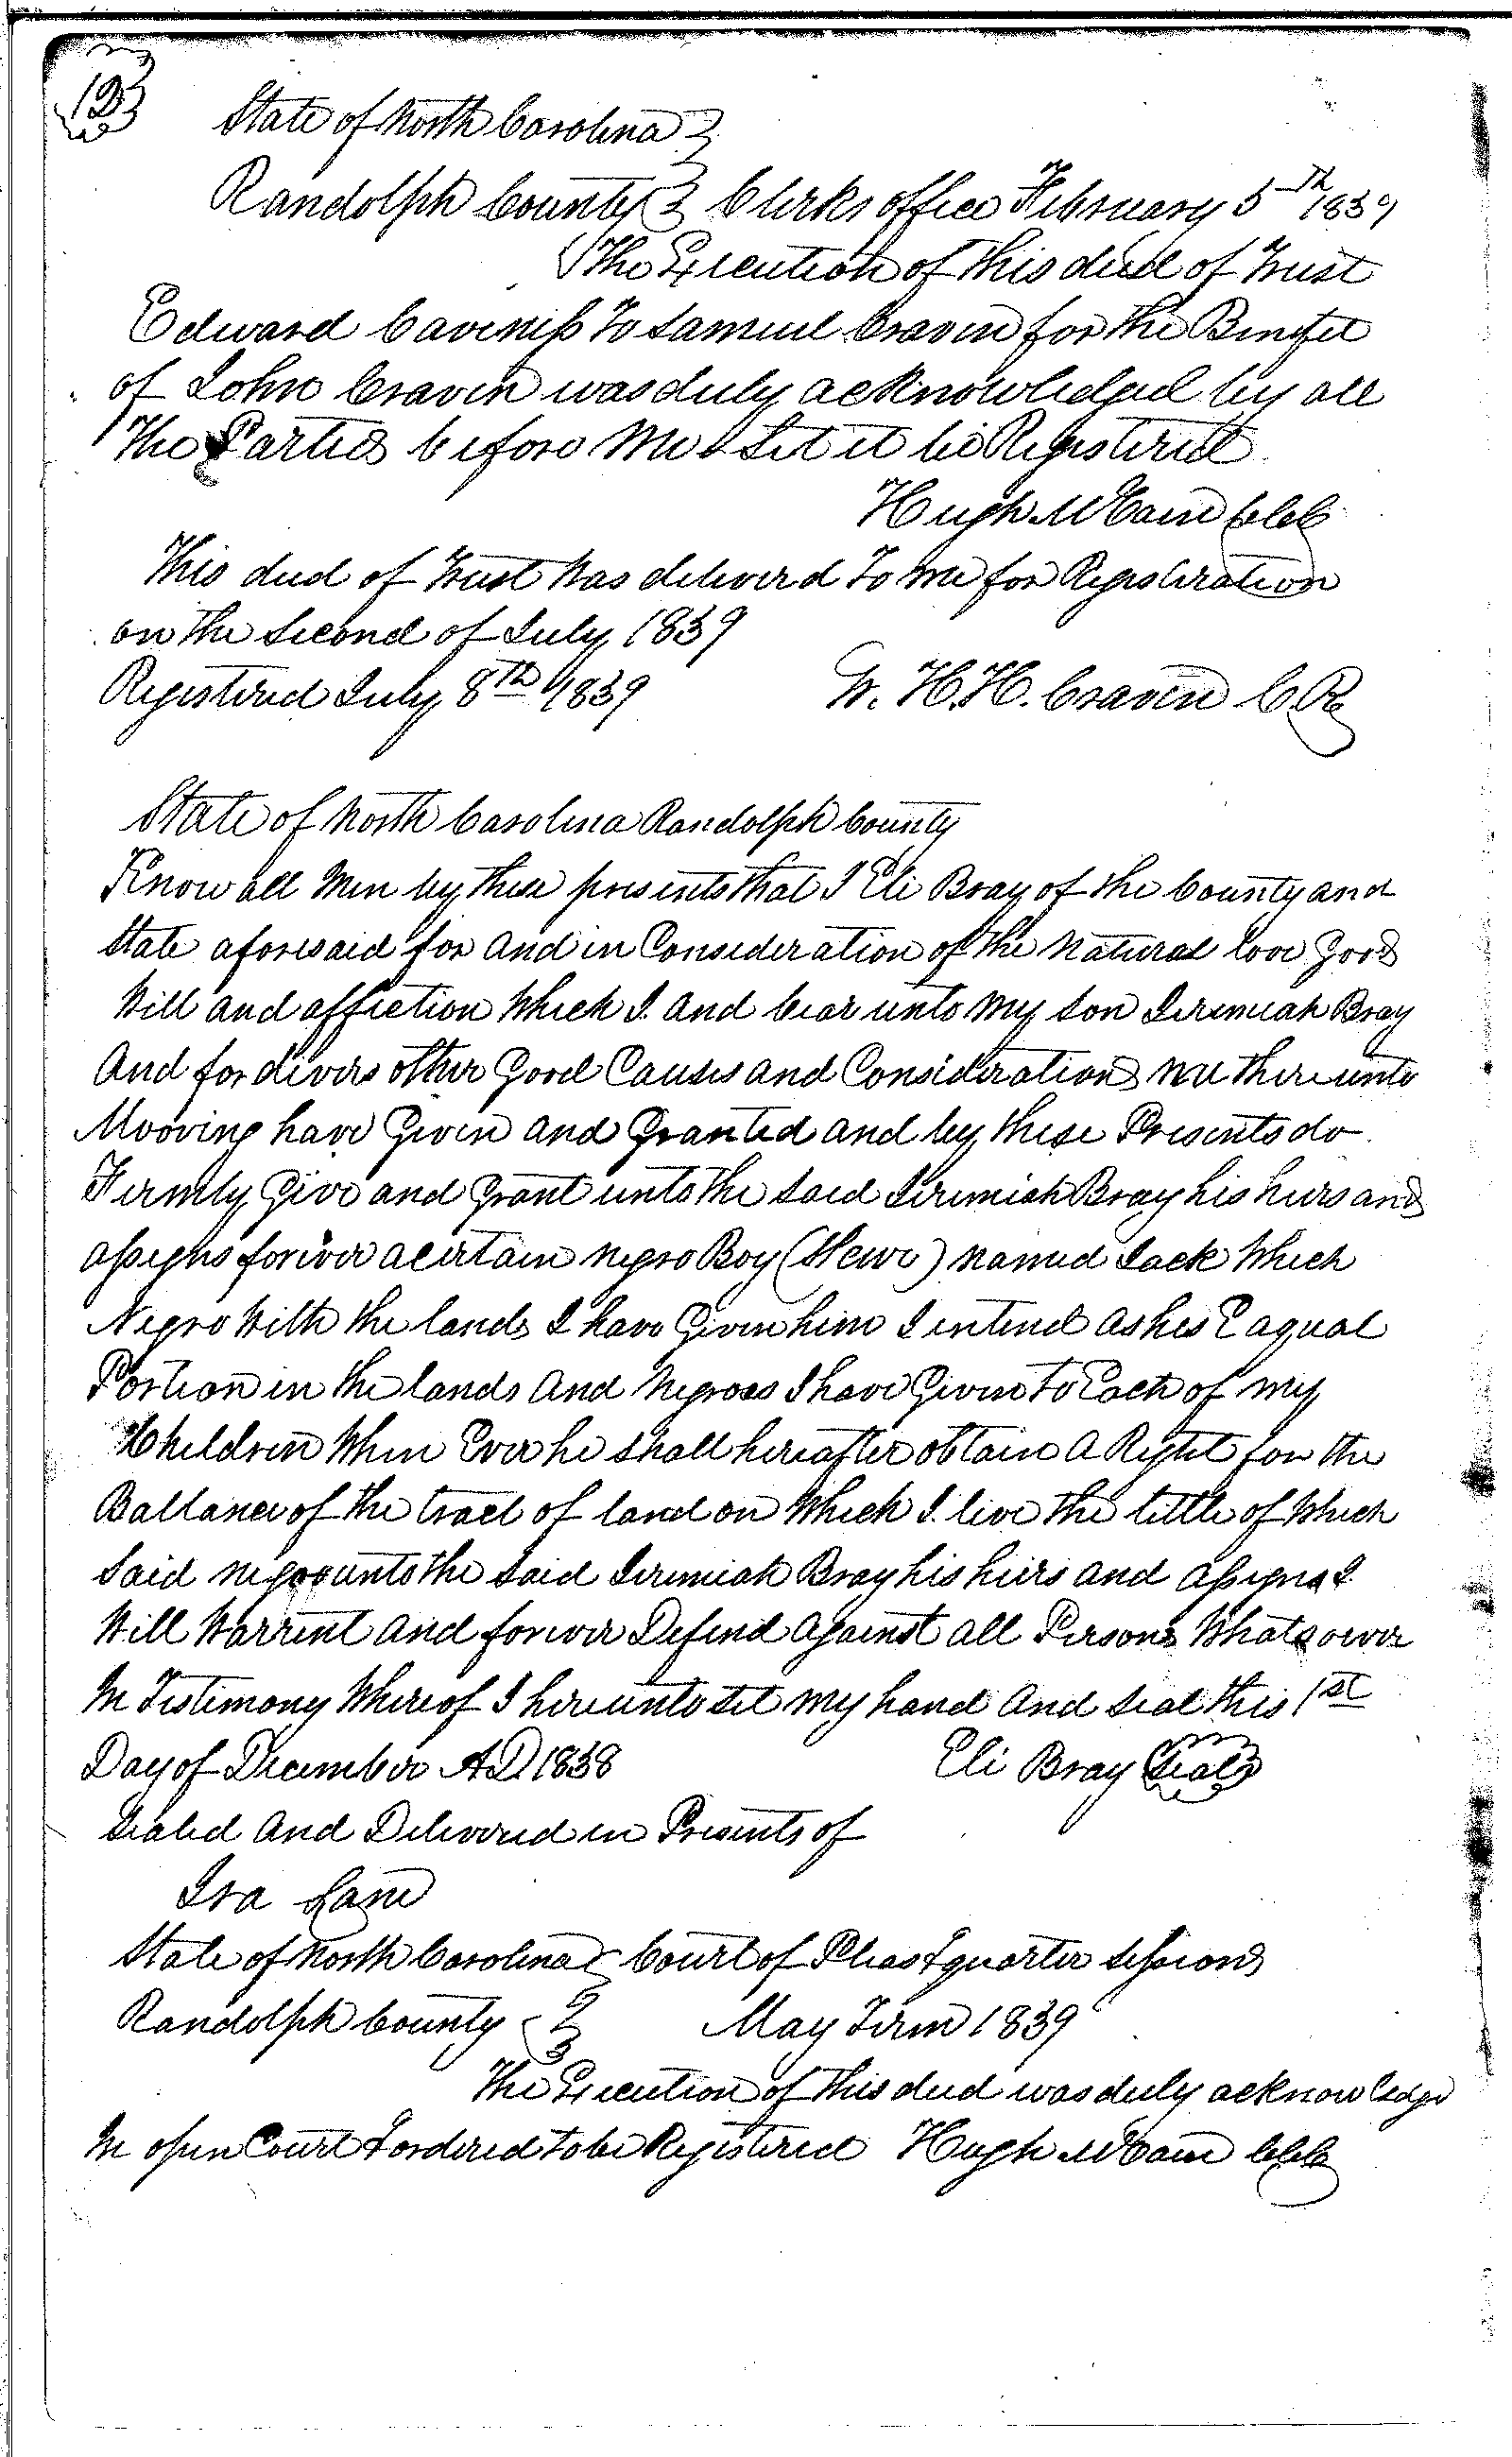 12
State of North Carolina
Randolph County Clerks office February 5th 1839
The Execution of this deed of Trust
Edward Caviness To Samuel Craven for the Benefit
of John Craven was duly acknowledged by all
The Parties before Me & Let it be Registered
Hugh McCain CCC
This deed of Trust Was deliverd To me for Registeration
on the Second of July 1839
Registered July 8th 1839 W. H. H. Craven C R
State of North Carolina Randolph County
Know all Men by these presents that I Eli Bray of the County and
State aforesaid for and in Consideration of the Natural love Good
Will and affection Which I and bear unto My Son Jeremiah Bray
And for divers other Good Causes and Considerations Me thereunto
Mooving have Given and Granted and by these Presents do
Firmly Give and Grant unto the Said Jeremiah Bray his heirs and
assigns forever a certain Negro Boy (Slave) Named Jack Which
Negro With the lands I have Given him I intend as his Eaqual
Portion in the lands And Negroes I have Given To Each of my
Children When Ever he shall hereafter obtain A Right for the
Ballance of the tract of land on Which I live the tittle of Which
Said negro unto the Said Jeremiah Bray his heirs and assigns I
Will Warrent and forever Defend against all Persons Whatsoever
In Testimony Whereof I hereunto set my hand And Seal this 1st
Day of December A D 1838 Eli Bray Seal
Sealed And Delivered in Presents of
Ira Lane
State of North Carolina Court of Pleas & quarter Sessions
Randolph County May Term 1839
The Execution of this deed was duly acknowledge
In open Court & ordered to be Registered Hugh McCain CCC